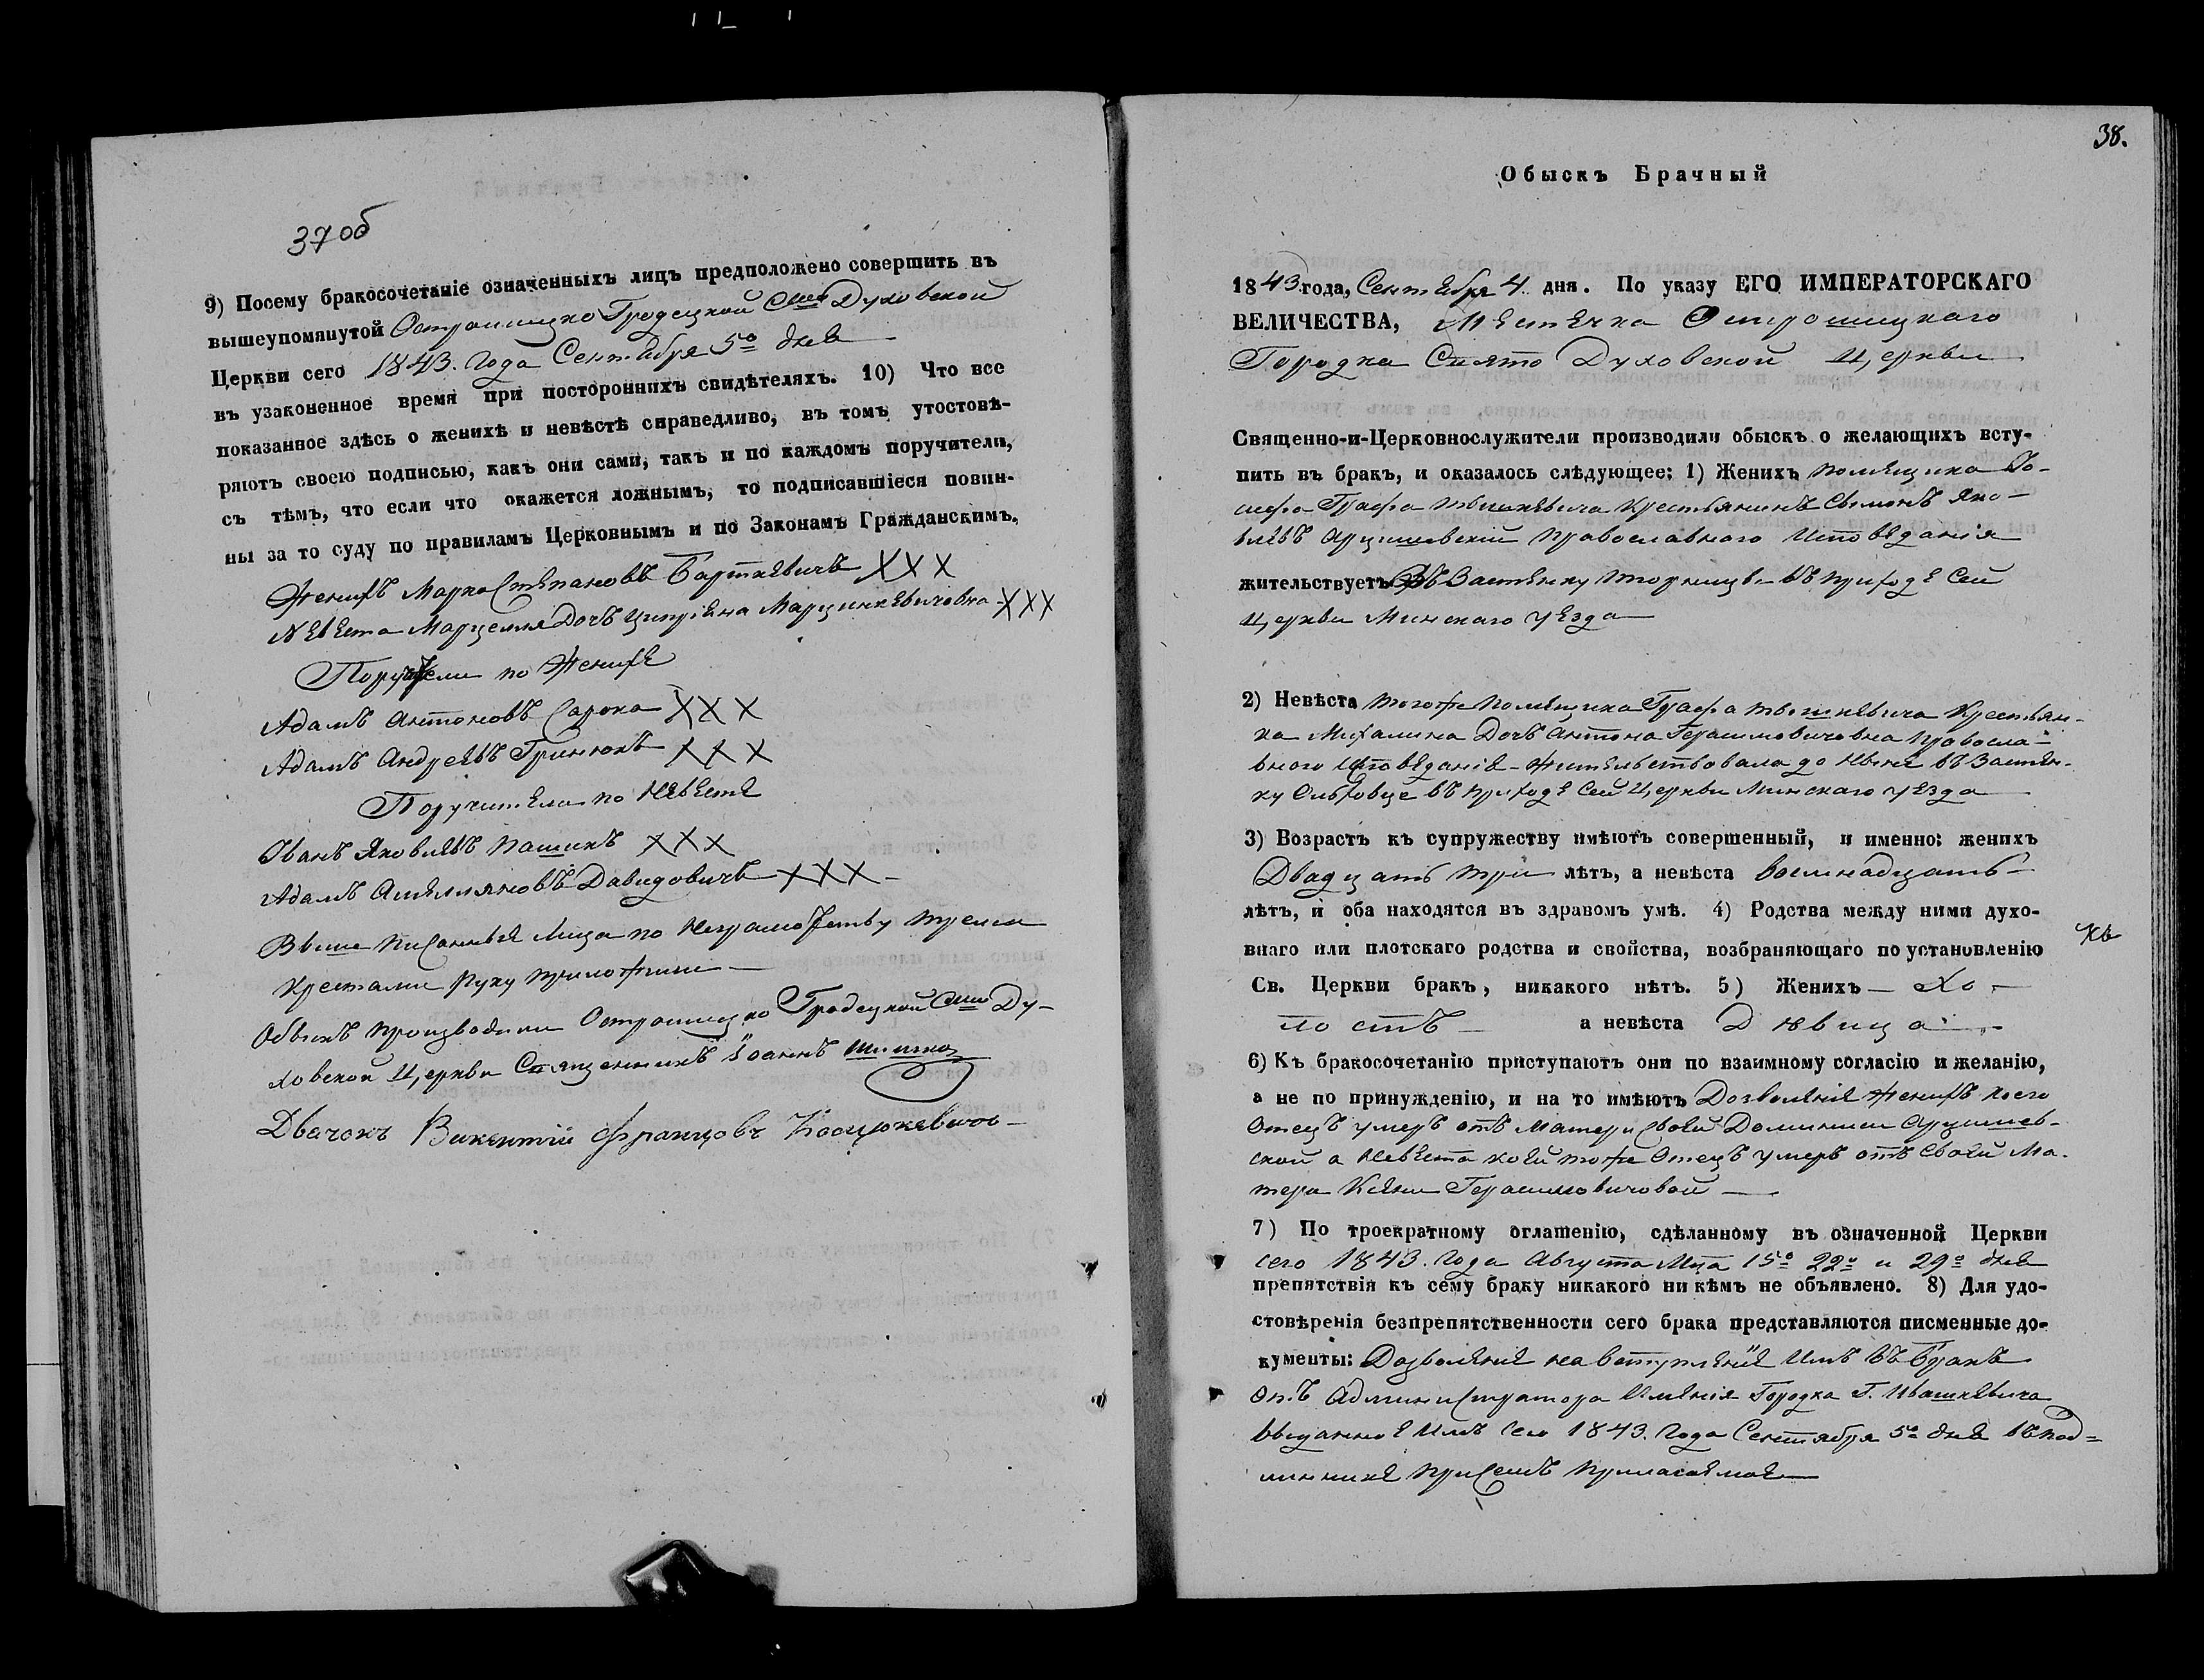 37 об
9) Посему бракосочетаніе означенныхъ лицъ предположено совершить въ
вышеупомянутой Острошицко Гродецкой Духовской
Церкви сего 1843. Года Сентября 5го дня
въ узаконенное время при постороннихъ свидѣтеляхъ. 10) Что все
показанное здѣсь о женихѣ и невѣстѣ справедливо, въ томъ утостовѣ-
ряютъ своею подписью, какъ они сами, такъ и по каждомъ поручители,
съ тѣмъ, что если что окажется ложнымъ, то подписавшіеся повин-
ны за то суду по правиламъ Церковнымъ и по Законамъ Гражданскимъ.
Женихъ Марко Степановъ Барткевичъ XXX
Невѣста Марцелля Дочъ Ципріяна Марцинкевичовна XXX
Поручители по Женихе
Адамъ Антоновъ Сарока XXX
Адамъ Андреевъ Гринюкъ XXX
Поручители по Невѣстѣ
Іванъ Яковлевъ Пашикъ XXX
Адамъ Амеляновъ Давидовичъ XXX
Выше писанныя Лица по Неграмотству тремя
Крестами руку приложили
Обыскъ производили Острошицко Гродецкой Ду-
ховской Церкви Священникъ Іоаннъ Шишко
Дьячокъ Викентій Францовъ Косцюкевичъ
38.
Обыскъ Брачный
1843 года, Сентября 4 дня. По указу ЕГО ИМПЕРАТОРСКАГО
ВЕЛИЧЕСТВА, Местечка Острошицкаго
Городка Свято Духовской Церкви
Священно-и-Церковнослужители производили обыскъ о желающихъ всту-
пить въ бракъ, и оказалось слѣдующее: 1) Женихъ помещика Іо-
сифа Графа Тышкевича Крестьянинъ Сымонъ Яко-
влевъ Арцишевскій Православнаго Исповѣданія
жительствуетъ Въ Застенку въ приходе Сей
Церкви Минскаго уезда
2) Невѣста тогоже Помещика Графа Тышкевича Крестьян-
ка Михалина Дочъ Антона Герасимовичовна Правосла-
внаго Исповеданія Жительствовала до Ныне въ Застен-
ку Ольховце въ приходе Сей Церкви Минскаго уезда
3) Возрастъ къ супружеству имѣютъ совершенный, и именно: женихъ
Двадцать три лѣтъ, а невѣста восимнадцать
лѣтъ, и оба находятся въ здравомъ умѣ. 4) Родства между ними духо-
внаго или плотскаго родства и свойства, возбраняющаго по установленію
Св. Церкви бракъ, никакого нѣтъ. 5) Женихъ Хо-
лостъ а невѣста Дѣвица
6) Къ бракосочетанію приступаютъ они по взаимному согласію и желанію,
а не по принужденію, и на то имѣютъ Дозволеніе Женихъ коего
Отецъ умеръ отъ Матери Своей Доминики Арцишев-
ской а Невѣста коей тоже Отецъ умеръ отъ Своей Ма-
тери Ксени Герасимовичовой
7) По троекратному оглашенію, сдѣланному въ означенной Церкви
сего 1843. Года Августа Мца 15го 22го и 29го дня
препятствія къ сему браку никакого ни кѣмъ не объявлено. 8) Для удо-
стовѣренія безпрепятственности сего брака представляются писменные до-
кументы: Дозволеніе на вступленіе Имъ въ Бракъ
отъ Администратора Именія Городка Г. Ивашкевича
выданное Имъ Сего 1843. Года Сентября 5го дня въ под-
линнике присемъ прилагаемое